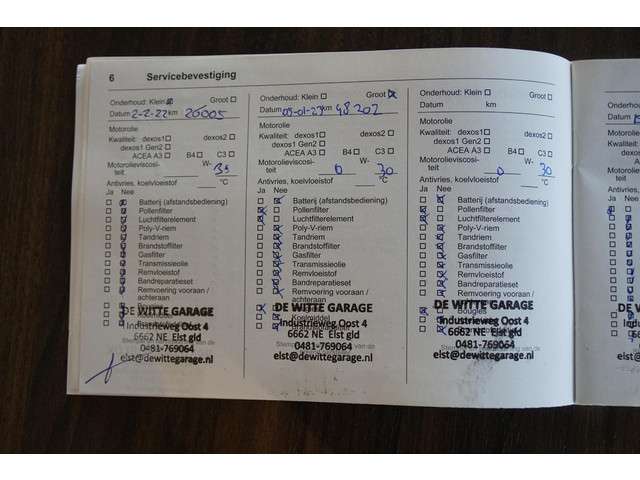 6 Servicebevestiging
Onderhoud: Klein Groot
Datum 2-2-22 km 26005
Motorolie
Kwaliteit: dexos1 dexos2
dexos1 Gen2
ACEA A3 B4 C3
Motorolieviscosi- W-
teit
Antivries, koelvloeistof °C
Ja Nee
Batterij (afstandsbediening)
Pollenfilter
Luchtfilterelement
Poly-V-riem
Tandriem
Brandstoffilter
Gasfilter
Transmissieolie
Remvloeistof
Bandreparatieset
Remvoering vooraan /
achteraan
Bougies
DE WITTE GARAGE
Industrieweg Oost 4
6662 NE Elst gld
0481-769064
elst@dewittegarage.nl
Onderhoud: Klein Groot
Datum 05-01-23 km 48202
Motorolie
Kwaliteit: dexos1 dexos2
dexos1 Gen2
ACEA A3 B4 C3
Motorolieviscosi- W-
teit 0 30
Antivries, koelvloeistof °C
Ja Nee
Batterij (afstandsbediening)
Pollenfilter
Luchtfilterelement
Poly-V-riem
Tandriem
Brandstoffilter
Gasfilter
Transmissieolie
Remvloeistof
Bandreparatieset
Remvoering vooraan /
achteraan
DE WITTE GARAGE
Koelmiddel
Industrieweg Oost 4
6662 NE Elst gld
0481-769064
elst@dewittegarage.nl
Onderhoud: Klein Groot
Datum km
Motorolie
Kwaliteit: dexos1 dexos2
dexos1 Gen2
ACEA A3 B4 C3
Motorolieviscosi- W-
teit 0 30
Antivries, koelvloeistof °C
Ja Nee
Batterij (afstandsbediening)
Pollenfilter
Luchtfilterelement
Poly-V-riem
Tandriem
Brandstoffilter
Gasfilter
Transmissieolie
Remvloeistof
Bandreparatieset
Remvoering vooraan /
achteraan
DE WITTE GARAGE
Bougies
Industrieweg Oost 4
6662 NE Elst gld
0481-769064
elst@dewittegarage.nl